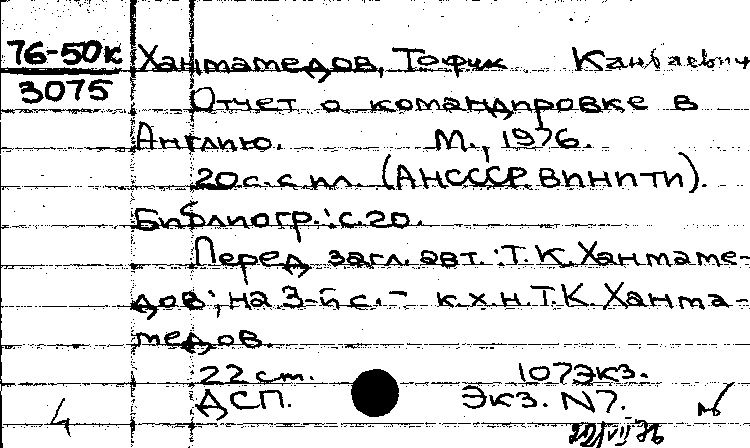 76-50к
3075
Ханмамедов, Тофик Канбаевич
Отчет о командировке в
Англию. М., 1976.
20 с. с ил. (АН СССР. ВИНИТИ).
Библиогр.: с. 20.
Перед загл. авт.: Т.К. Ханмаме-
дов; на 3-й с. - к.х.н. Т.К. Ханма-
медов.
22 см. 107 экз.
ДСП. Экз. N7.
4